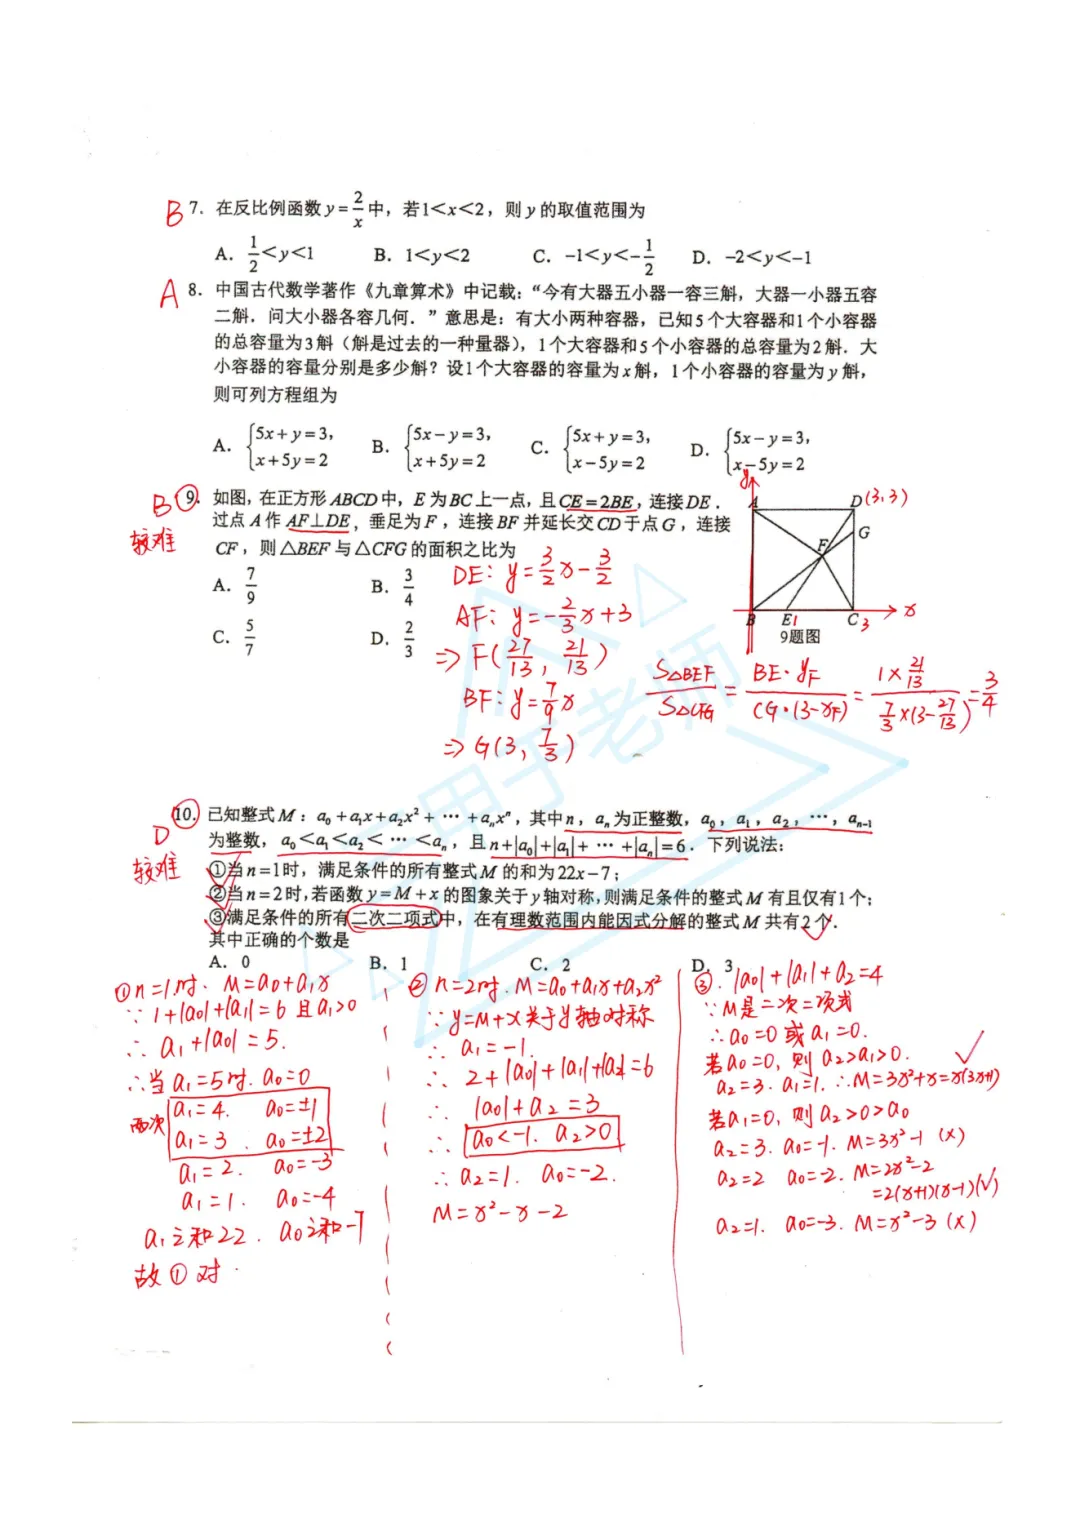 B 7. 在反比例函数 y=2/x 中，若1<x<2，则 y 的取值范围为
A. 1/2<y<1 B. 1<y<2 C. -1<y<-1/2 D. -2<y<-1
A 8. 中国古代数学著作《九章算术》中记载：“今有大器五小器一容三斛，大器一小器五容
二斛．问大小器各容几何．”意思是：有大小两种容器，已知5个大容器和1个小容器
的总容量为3斛（斛是过去的一种量器），1个大容器和5个小容器的总容量为2斛．大
小容器的容量分别是多少斛？设1个大容器的容量为x斛，1个小容器的容量为y斛，
则可列方程组为
A. {5x+y=3, x+5y=2 B. {5x-y=3, x+5y=2 C. {5x+y=3, x-5y=2 D. {5x-y=3, x-5y=2
B 9. 如图，在正方形ABCD中，E为BC上一点，且CE=2BE，连接DE．
较难 过点A作AF⊥DE，垂足为F，连接BF并延长交CD于点G，连接
CF，则△BEF与△CFG的面积之比为
A. 7/9 B. 3/4
C. 5/7 D. 2/3
y A D(3,3)
G
F
B E1 C3 x
9题图
DE: y=3/2x-3/2
AF: y=-2/3x+3
=> F(27/13, 21/13)
BF: y=7/9x
=> G(3, 7/3)
S△BEF/S△CFG = BE·yF/CG·(3-xF) = 1×21/13 / 7/3×(3-27/13) = 3/4
10. 已知整式M：a₀+a₁x+a₂x²+⋯+aₙxⁿ，其中n，aₙ为正整数，a₀，a₁，a₂，⋯，aₙ₋₁
D 为整数，a₀<a₁<a₂<⋯<aₙ，且n+|a₀|+|a₁|+⋯+|aₙ|=6．下列说法：
较难 ①当n=1时，满足条件的所有整式M的和为22x-7；
②当n=2时，若函数y=M+x的图象关于y轴对称，则满足条件的整式M有且仅有1个；
③满足条件的所有二次二项式中，在有理数范围内能因式分解的整式M共有2个．
其中正确的个数是
A. 0 B. 1 C. 2 D. 3
①n=1时. M=a₀+a₁x
∵1+|a₀|+|a₁|=6 且a₁>0
∴ a₁+|a₀|=5.
∴当 a₁=5时. a₀=0
两次 a₁=4. a₀=±1
a₁=3. a₀=±2
a₁=2. a₀=-3
a₁=1. a₀=-4
a₁之和22. a₀之和-7
故①对
② n=2时. M=a₀+a₁x+a₂x²
∵y=M+x关于y轴对称
∴ a₁=-1.
∴ 2+|a₀|+|a₁|+|a₂|=6
∴ |a₀|+a₂=3
∴ a₀<-1. a₂>0
∴ a₂=1. a₀=-2.
M=x²-x-2
③. |a₀|+|a₁|+a₂=4
∵M是二次二项式
∴a₀=0或a₁=0.
若a₀=0, 则a₂>a₁>0.
a₂=3. a₁=1. ∴M=3x²+x=x(3x+1)
若a₁=0, 则a₂>0>a₀
a₂=3. a₀=-1. M=3x²-1 (×)
a₂=2 a₀=-2. M=2x²-2
=2(x+1)(x-1)(√)
a₂=1. a₀=-3. M=x²-3 (×)